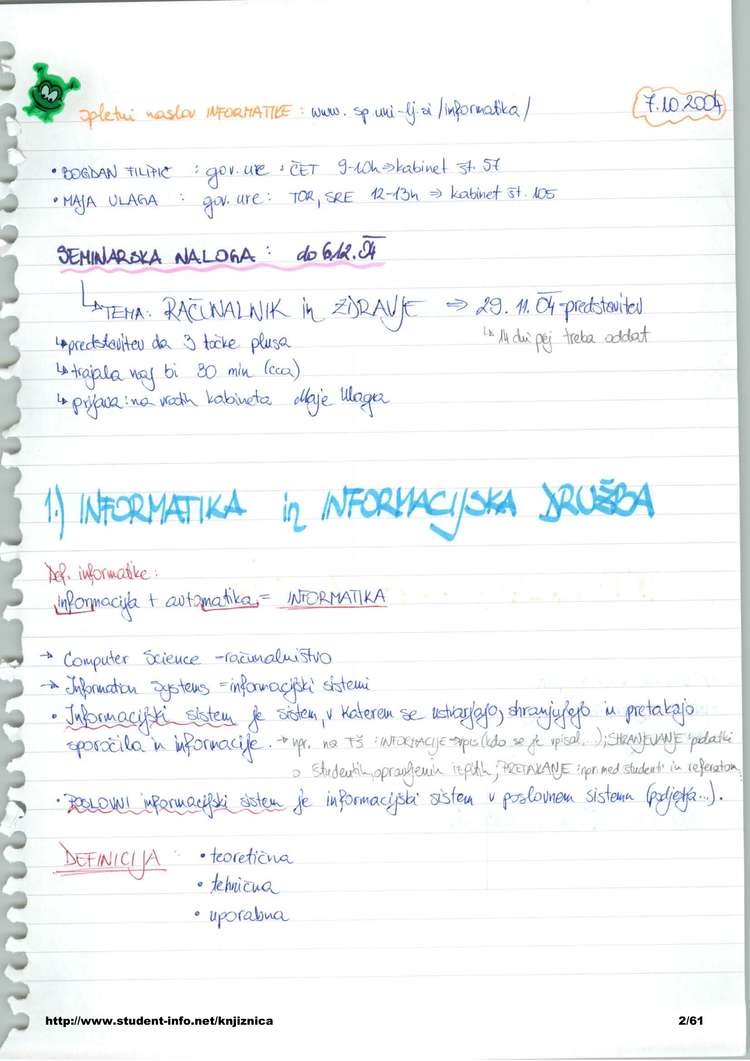 spletni naslov INFORMATIKE : www.sp.uni-lj.si/informatika/
7.10.2004
• BOGDAN FILIPIČ : gov. ure : ČET 9-10h ⇒ kabinet št. 57
• MAJA ULAGA : gov. ure : TOR, SRE 12-13h ⇒ kabinet št. 105
SEMINARSKA NALOGA : do 6.12.04
↳ TEMA: RAČUNALNIK in ZDRAVJE ⇒ 29. 11. 04 - predstavitev
↳ 14 dni pej treba oddat
↳ predstavitev da 3 točke plusa
↳ trajala naj bi 30 min (cca)
↳ prijava: na vratih kabineta Maje Ulaga
1.) INFORMATIKA in INFORMACIJSKA DRUŽBA
Def. informatike :
informacija + avtomatika = INFORMATIKA
→ Computer Science - računalništvo
→ Information Systems = informacijski sistemi
• Informacijski sistem je sistem, v katerem se ustvarjajo, shranjujejo in pretakajo
sporočila in informacije. → npr. na FŠ : INFORMACIJE - vpis (kdo se je vpisal...); SHRANJEVANJE : podatki
o študentih, opravljenih izpitih; PRETAKANJE : npr. med študenti in referatom
• POSLOVNI informacijski sistem je informacijski sistem v poslovnem sistemu (podjetja...).
DEFINICIJA : • teoretična
• tehnična
• uporabna
http://www.student-info.net/knjiznica
2/61